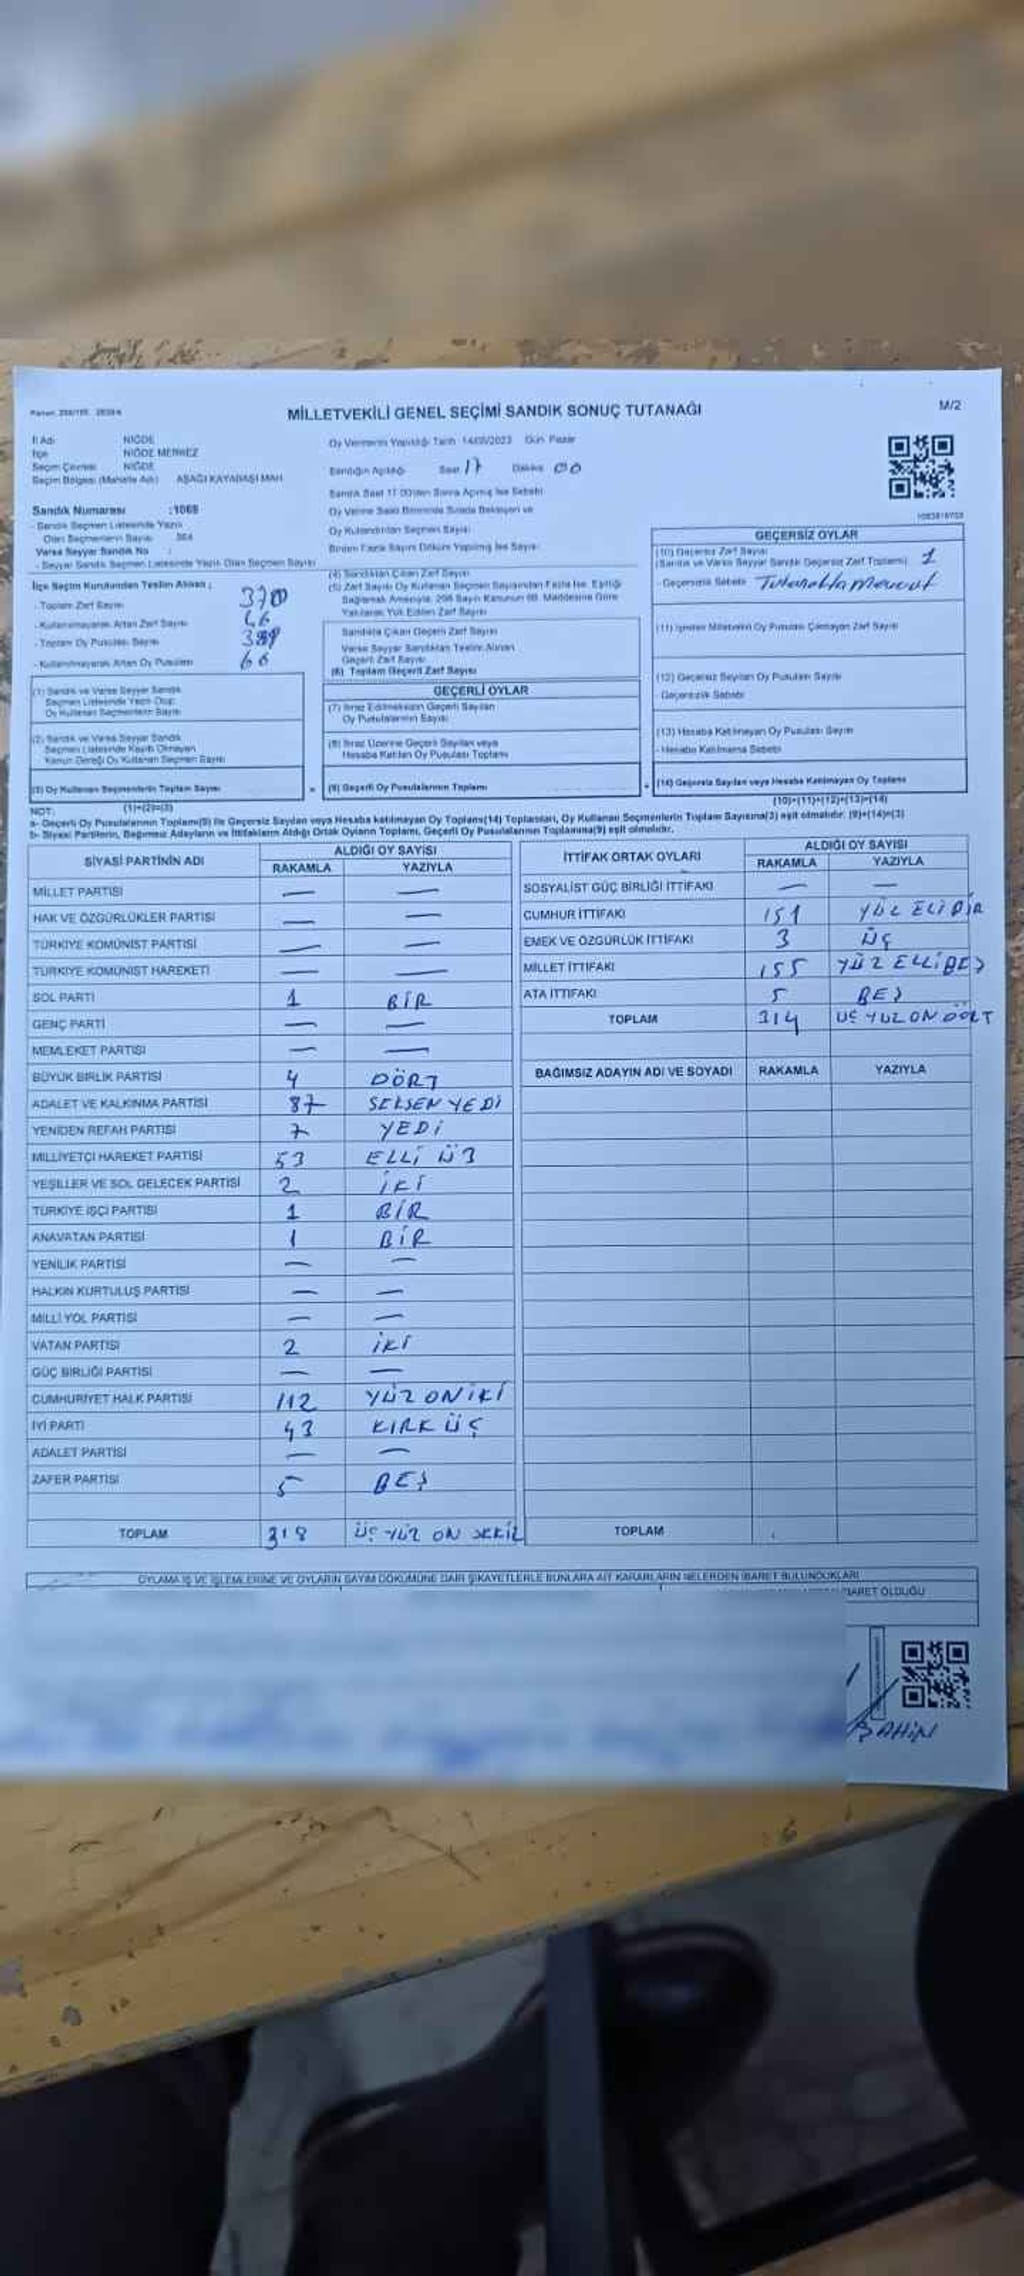 MİLLETVEKİLİ GENEL SEÇİMİ SANDIK SONUÇ TUTANAĞI
M/2
İl Adı NİĞDE
İlçe NİĞDE MERKEZ
Seçim Çevresi NİĞDE
Seçim Bölgesi (Mahalle Adı) AŞAĞI KAYABAŞI MAH
Oy Vermenin Yapıldığı Tarih 14/05/2023 Gün Pazar
Sandığın Açıldığı Saat 17 Dakika 00
Sandık Saat 17.00'den Sonra Açılmış İse Sebebi
Oy Verme Saati Bitiminde Sırada Bekleyen ve
Oy Kullandırılan Seçmen Sayısı
Birden Fazla Sayım Döküm Yapılmış İse Sayısı
Sandık Numarası :1069
- Sandık Seçmen Listesinde Yazılı
Olan Seçmenlerin Sayısı
Varsa Seyyar Sandık No :
- Seyyar Sandık Seçmen Listesinde Yazılı Olan Seçmen Sayısı
İlçe Seçim Kurulundan Teslim Alınan ;
- Toplam Zarf Sayısı 370
- Kullanılmayarak Artan Zarf Sayısı 66
- Toplam Oy Pusulası Sayısı
- Kullanılmayarak Artan Oy Pusulası 66
(1) Sandık ve Varsa Seyyar Sandık
Seçmen Listesinde Yazılı Olup
Oy Kullanan Seçmenlerin Sayısı
(2) Sandık ve Varsa Seyyar Sandık
Seçmen Listesinde Kayıtlı Olmayan
Kanun Gereği Oy Kullanan Seçmen Sayısı
(3) Oy Kullanan Seçmenlerin Toplam Sayısı
(1)+(2)=(3)
(4) Sandıktan Çıkan Zarf Sayısı
(5) Zarf Sayısı Oy Kullanan Seçmen Sayısından Fazla İse, Eşitliği
Sağlamak Amacıyla, 298 Sayılı Kanunun 98. Maddesine Göre
Yakılarak Yok Edilen Zarf Sayısı
Sandıkta Çıkan Geçerli Zarf Sayısı
Varsa Seyyar Sandıktan Teslim Alınan
Geçerli Zarf Sayısı
(6) Toplam Geçerli Zarf Sayısı
GEÇERLİ OYLAR
(7) İtiraz Edilmeksizin Geçerli Sayılan
Oy Pusulalarının Sayısı
(8) İtiraz Üzerine Geçerli Sayılan veya
Hesaba Katılan Oy Pusulası Toplamı
(9) Geçerli Oy Pusulalarının Toplamı
GEÇERSİZ OYLAR
(10) Geçersiz Zarf Sayısı
(Sandık ve Varsa Seyyar Sandık Geçersiz Zarf Toplamı) 1
- Geçersizlik Sebebi Tutanakta mevcut
(11) İçinden Milletvekili Oy Pusulası Çıkmayan Zarf Sayısı
(12) Geçersiz Sayılan Oy Pusulası Sayısı
- Geçersizlik Sebebi
(13) Hesaba Katılmayan Oy Pusulası Sayısı
- Hesaba Katılmama Sebebi
(14) Geçersiz Sayılan veya Hesaba Katılmayan Oy Toplamı
(10)+(11)+(12)+(13)=(14)
NOT:
a- Geçerli Oy Pusulalarının Toplamı(9) ile Geçersiz Sayılan veya Hesaba katılmayan Oy Toplamı(14) Toplamları, Oy Kullanan Seçmenlerin Toplam Sayısına(3) eşit olmalıdır. (9)+(14)=(3)
b- Siyasi Partilerin, Bağımsız Adayların ve İttifakların Aldığı Ortak Oyların Toplamı, Geçerli Oy Pusulalarının Toplamına(9) eşit olmalıdır.
SİYASİ PARTİNİN ADI ALDIĞI OY SAYISI
RAKAMLA YAZIYLA
MİLLET PARTİSİ — —
HAK VE ÖZGÜRLÜKLER PARTİSİ — —
TÜRKİYE KOMÜNİST PARTİSİ — —
TÜRKİYE KOMÜNİST HAREKETİ — —
SOL PARTİ 1 BİR
GENÇ PARTİ — —
MEMLEKET PARTİSİ — —
BÜYÜK BİRLİK PARTİSİ 4 DÖRT
ADALET VE KALKINMA PARTİSİ 87 SEKSEN YEDİ
YENİDEN REFAH PARTİSİ 7 YEDİ
MİLLİYETÇİ HAREKET PARTİSİ 53 ELLİ ÜÇ
YEŞİLLER VE SOL GELECEK PARTİSİ 2 İKİ
TÜRKİYE İŞÇİ PARTİSİ 1 BİR
ANAVATAN PARTİSİ 1 BİR
YENİLİK PARTİSİ — —
HALKIN KURTULUŞ PARTİSİ — —
MİLLİ YOL PARTİSİ — —
VATAN PARTİSİ 2 İKİ
GÜÇ BİRLİĞİ PARTİSİ — —
CUMHURİYET HALK PARTİSİ 112 YÜZ ONİKİ
İYİ PARTİ 43 KIRK ÜÇ
ADALET PARTİSİ — —
ZAFER PARTİSİ 5 BEŞ
TOPLAM 318 ÜÇ YÜZ ON SEKİZ
İTTİFAK ORTAK OYLARI ALDIĞI OY SAYISI
RAKAMLA YAZIYLA
SOSYALİST GÜÇ BİRLİĞİ İTTİFAKI — —
CUMHUR İTTİFAKI 151 YÜZ ELİ BİR
EMEK VE ÖZGÜRLÜK İTTİFAKI 3 ÜÇ
MİLLET İTTİFAKI 155 YÜZ ELLİ BEŞ
ATA İTTİFAKI 5 BEŞ
TOPLAM 314 ÜÇ YÜZ ON DÖRT
BAĞIMSIZ ADAYIN ADI VE SOYADI RAKAMLA YAZIYLA
TOPLAM
OYLAMA İŞ VE İŞLEMLERİNE VE OYLARIN SAYIM DÖKÜMÜNE DAİR ŞİKAYETLERLE BUNLARA AİT KARARLARIN NELERDEN İBARET BULUNDUKLARI
İBARET OLDUĞU
ŞAHİN